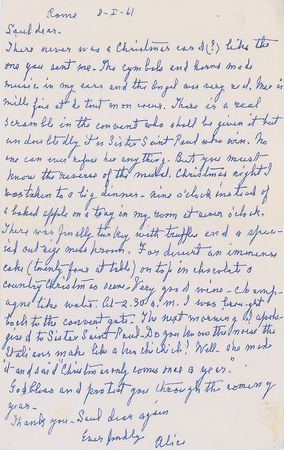 Rome 2-I-61
Saul dear.
There never was a Christmas card (?) like the
one you sent me. The cymbals and horns made
music in my ears and the Angel was very red. Merci
mille fois et de tout mon coeur. There is a real
scramble in the convent who shall be given it but
undoubtedly it is Sister Saint Paul who won. No
one can ever refuse her anything. But you must
know the reverse of the medal. Christmas night I
was taken to a big dinner - nine o'clock instead of
a baked apple on a tray in my room at seven o'clock.
There was finally turkey with truffles and a spec-
ial mushroom. For dessert an immense
cake (twenty four at table) on top in chocolate a
country Christmas scene. Very good wine - champ-
agne like water. At 2.30 a.m. I was brought
back to the convent gate. The next morning I apolo-
gised to Sister Saint Paul - Do you know the noise the
Italians make like a hen chichich? Well - she made
it and said Christmas only comes once a year."
God bless and protect you through the coming
year -
Thank you - Saul dear again
Ever fondly
Alice